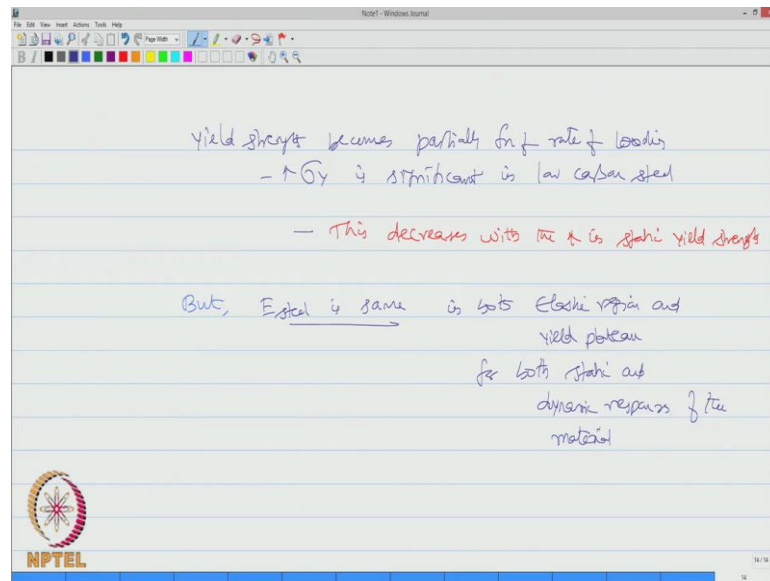 Note1 - Windows Journal
File Edit View Insert Actions Tools Help
Page Width
B I
yield strength becomes partially fn of rate of loading
- ↑ σy is significant in low carbon steel
- This decreases with the ↑ in static yield strength
But, Esteel is same in both Elastic region and
yield plateau
for both static and
dynamic response of the
material
NPTEL
14/14
14